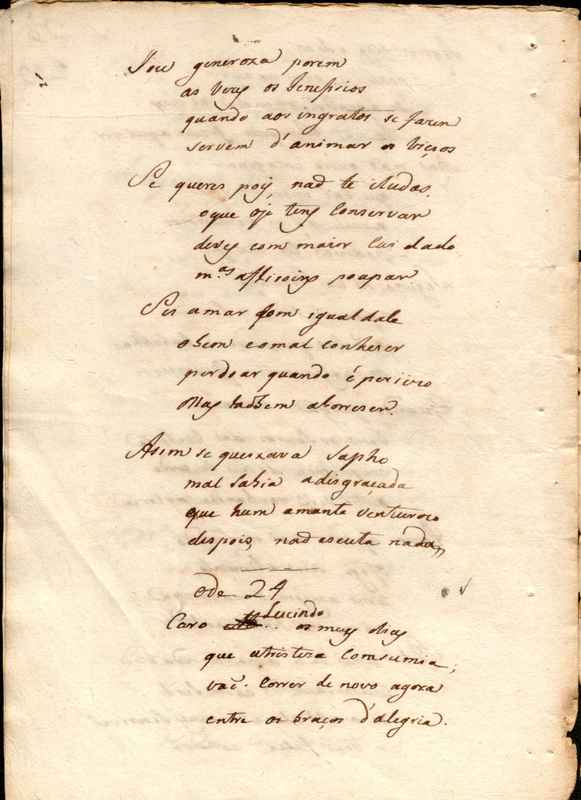 Sou generoza porem
as vezes os beneficios
quando aos ingratos se fazem
servem d'animar os viços
Se queres pois, naõ te iludas
o que oje tens conservar
deves com maior cuidado
m.as afliçoins poupar
Ser amar com igualdade
o bem e o mal conheser
perdoar quando é periciso
Mas tãobem aborreser.
Asim se queixava Sapho
mal sabia a disgraçada
que hum amante venturozo
despois, naõ escuta nada,
Ode 24
Lucindo
Caro os meus dias
que a tristeza comsumia,
vaẽ. Correr de novo agora
entre os braços d'alegria.